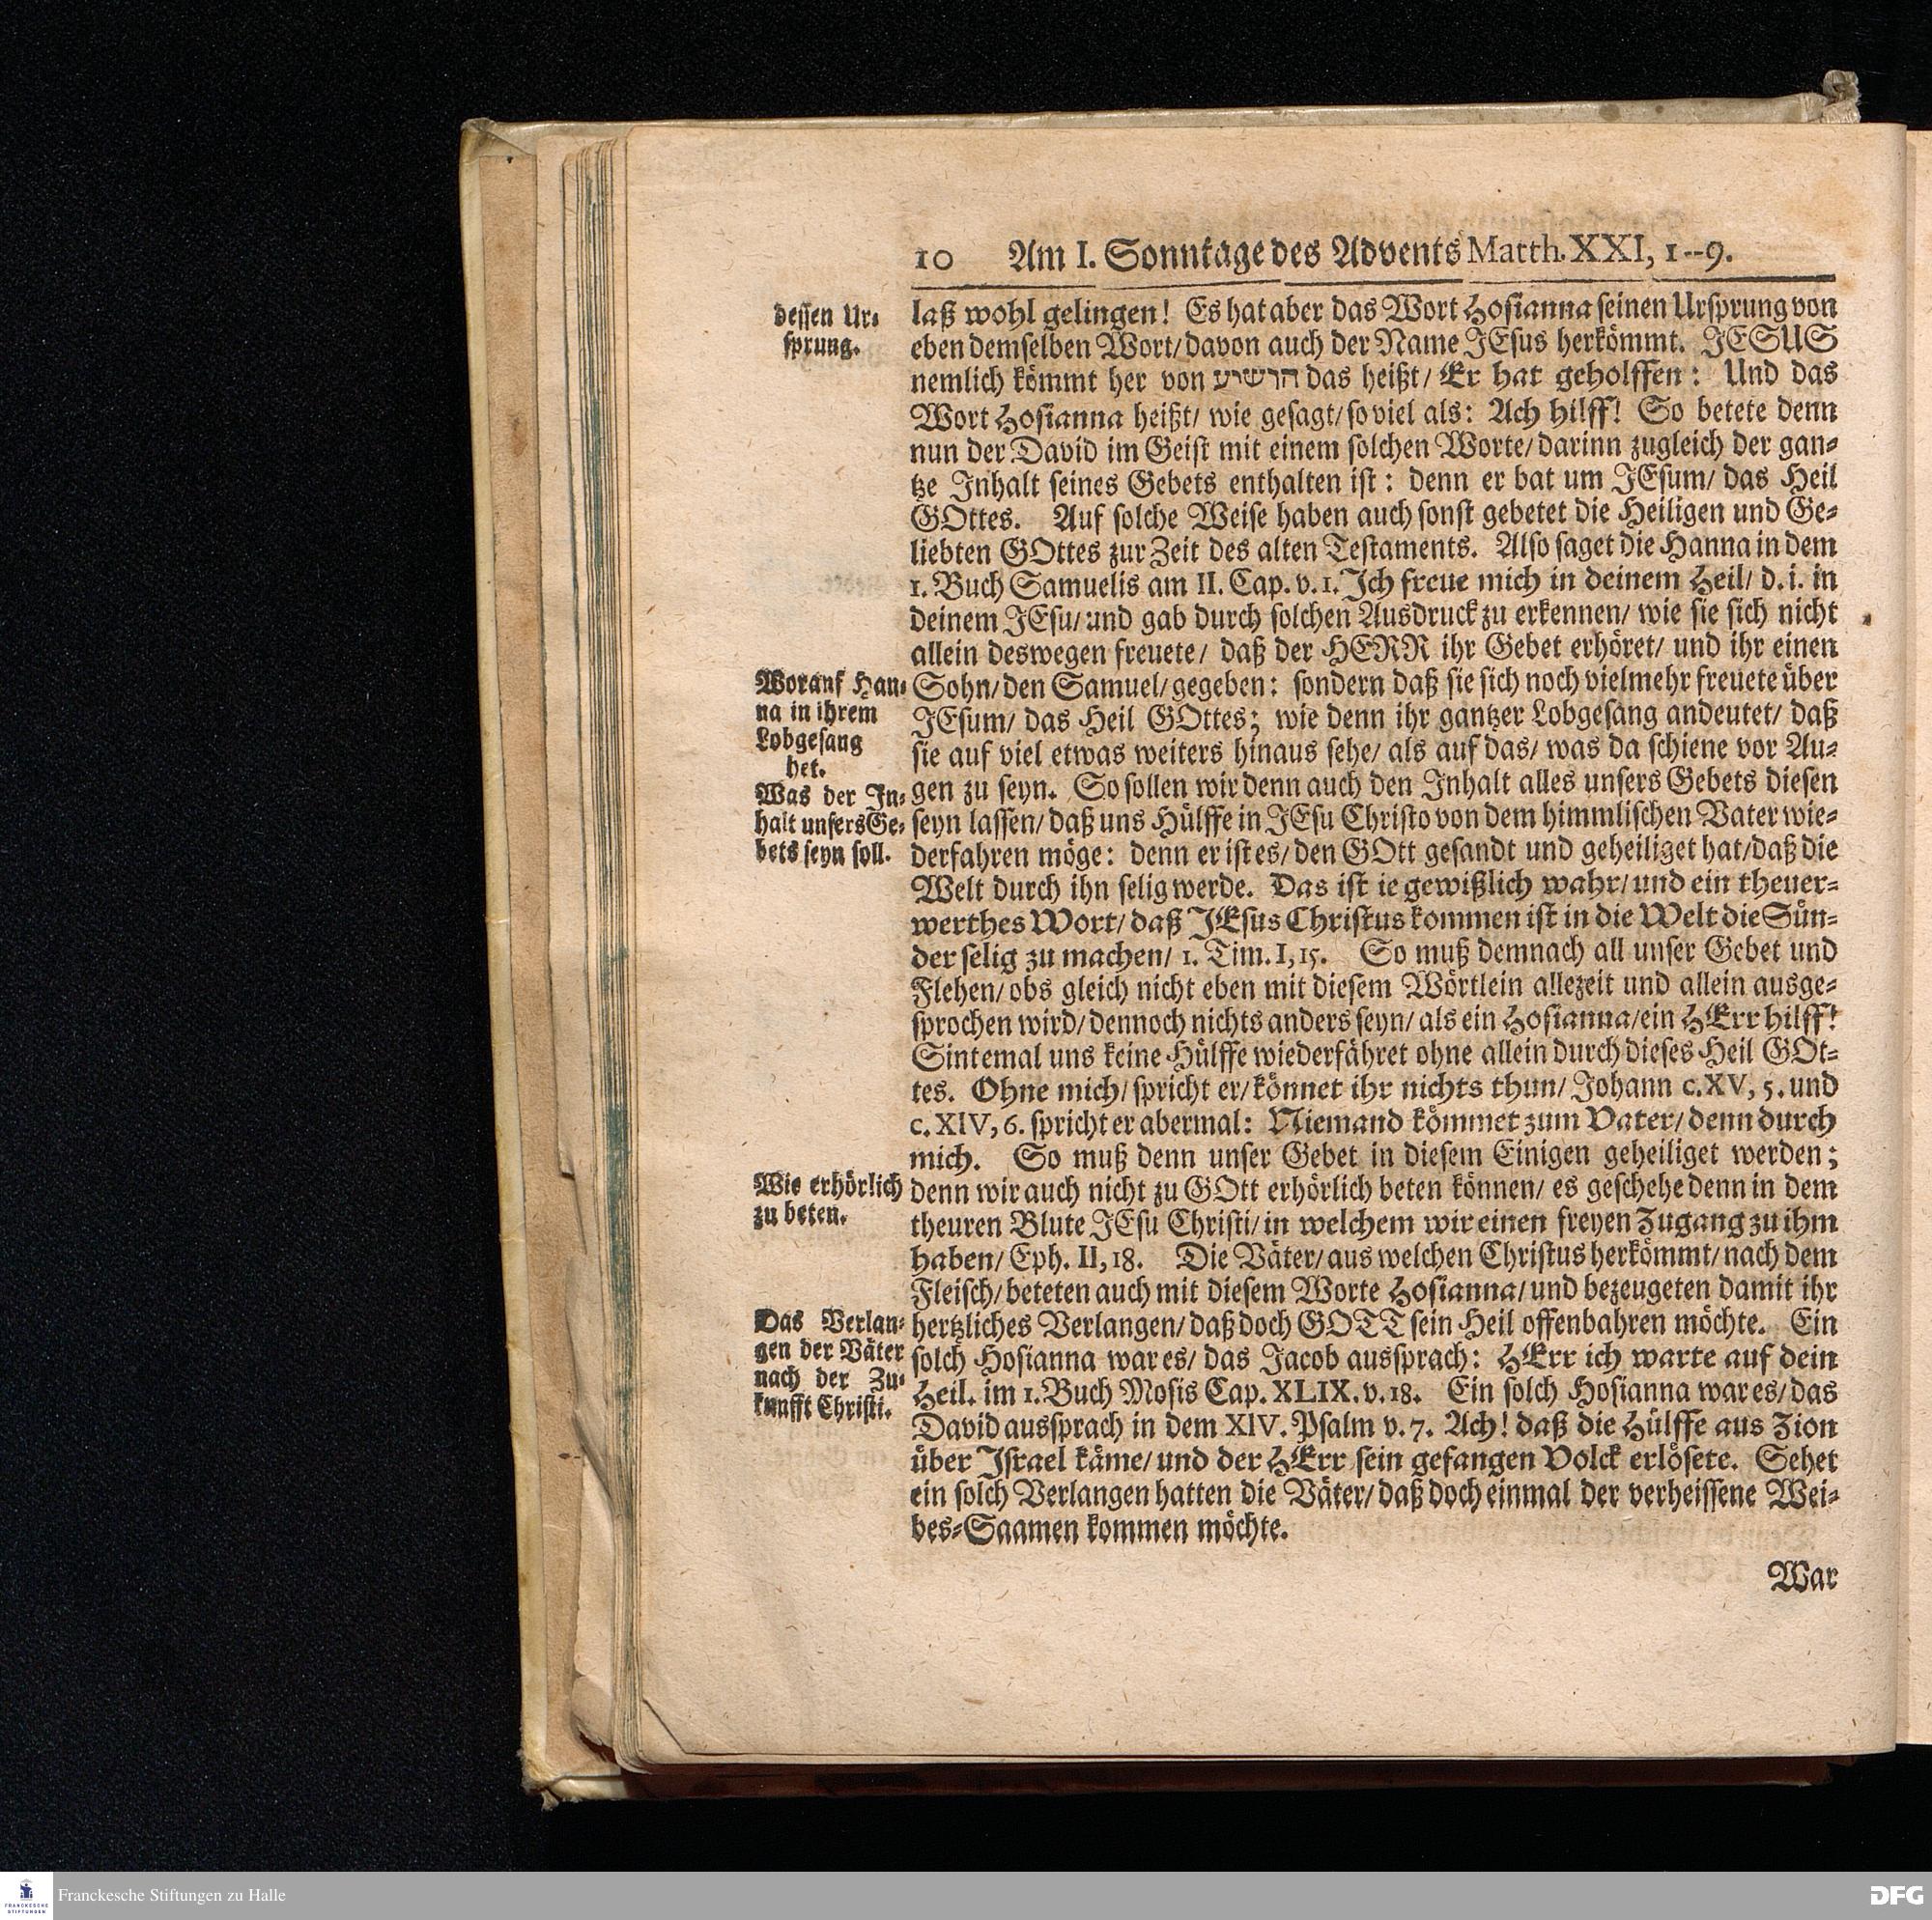 10 Am I. Sonntage des Advents Matth. XXI, 1--9.
dessen Ur-
sprung.
laß wohl gelingen! Es hat aber das Wort Hosianna seinen Ursprung von
eben demselben Wort/ davon auch der Name JEsus herkömmt. JESUS
nemlich kömmt her von הושיע das heißt/ Er hat geholffen: Und das
Wort Hosianna heißt/ wie gesagt/ so viel als: Ach hilff! So betete denn
nun der David im Geist mit einem solchen Worte/ darinn zugleich der gan-
tze Inhalt seines Gebets enthalten ist: denn er bat um JEsum/ das Heil
GOttes. Auf solche Weise haben auch sonst gebetet die Heiligen und Ge-
liebten GOttes zur Zeit des alten Testaments. Also saget die Hanna in dem
1. Buch Samuelis am II. Cap. v. 1. Ich freue mich in deinem Heil/ d. i. in
deinem JEsu/ und gab durch solchen Ausdruck zu erkennen/ wie sie sich nicht
allein deswegen freuete/ daß der HERR ihr Gebet erhöret/ und ihr einen
Worauf Han-
na in ihrem
Lobgesang
het.
Sohn/ den Samuel/ gegeben: sondern daß sie sich noch vielmehr freuete über
JEsum/ das Heil GOttes; wie denn ihr gantzer Lobgesang andeutet/ daß
sie auf viel etwas weiters hinaus sehe/ als auf das/ was da schiene vor Au-
Was der In-
halt unsers Ge-
bets seyn soll.
gen zu seyn. So sollen wir denn auch den Inhalt alles unsers Gebets diesen
seyn lassen/ daß uns Hülffe in JEsu Christo von dem himmlischen Vater wie-
derfahren möge: denn er ist es/ den GOtt gesandt und geheiliget hat/ daß die
Welt durch ihn selig werde. Das ist ie gewißlich wahr/ und ein theuer-
werthes Wort/ daß JEsus Christus kommen ist in die Welt die Sün-
der selig zu machen/ 1. Tim. I, 15. So muß demnach all unser Gebet und
Flehen/ obs gleich nicht eben mit diesem Wörtlein allezeit und allein ausge-
sprochen wird/ dennoch nichts anders seyn/ als ein Hosianna/ ein HErr hilff!
Sintemal uns keine Hülffe wiederfähret ohne allein durch dieses Heil GOt-
tes. Ohne mich/ spricht er/ könnet ihr nichts thun/ Johann c. XV, 5. und
c. XIV, 6. spricht er abermal: Niemand kömmet zum Vater/ denn durch
mich. So muß denn unser Gebet in diesem Einigen geheiliget werden;
Wie erhörlich
zu beten.
denn wir auch nicht zu GOtt erhörlich beten können/ es geschehe denn in dem
theuren Blute JEsu Christi/ in welchem wir einen freyen Zugang zu ihm
haben/ Eph. II, 18. Die Väter/ aus welchen Christus herkömmt/ nach dem
Fleisch/ beteten auch mit diesem Worte Hosianna/ und bezeugeten damit ihr
Das Verlan-
gen der Väter
nach der Zu-
kunfft Christi.
hertzliches Verlangen/ daß doch GOTT sein Heil offenbahren möchte. Ein
solch Hosianna war es/ das Jacob aussprach: HErr ich warte auf dein
Heil. im 1. Buch Mosis Cap. XLIX. v. 18. Ein solch Hosianna war es/ das
David aussprach in dem XIV. Psalm v. 7. Ach! daß die Hülffe aus Zion
über Israel käme/ und der HErr sein gefangen Volck erlösete. Sehet
ein solch Verlangen hatten die Väter/ daß doch einmal der verheissene Wei-
bes-Saamen kommen möchte.
War
FRANCKESCHE
STIFTUNGEN
Franckesche Stiftungen zu Halle
DFG